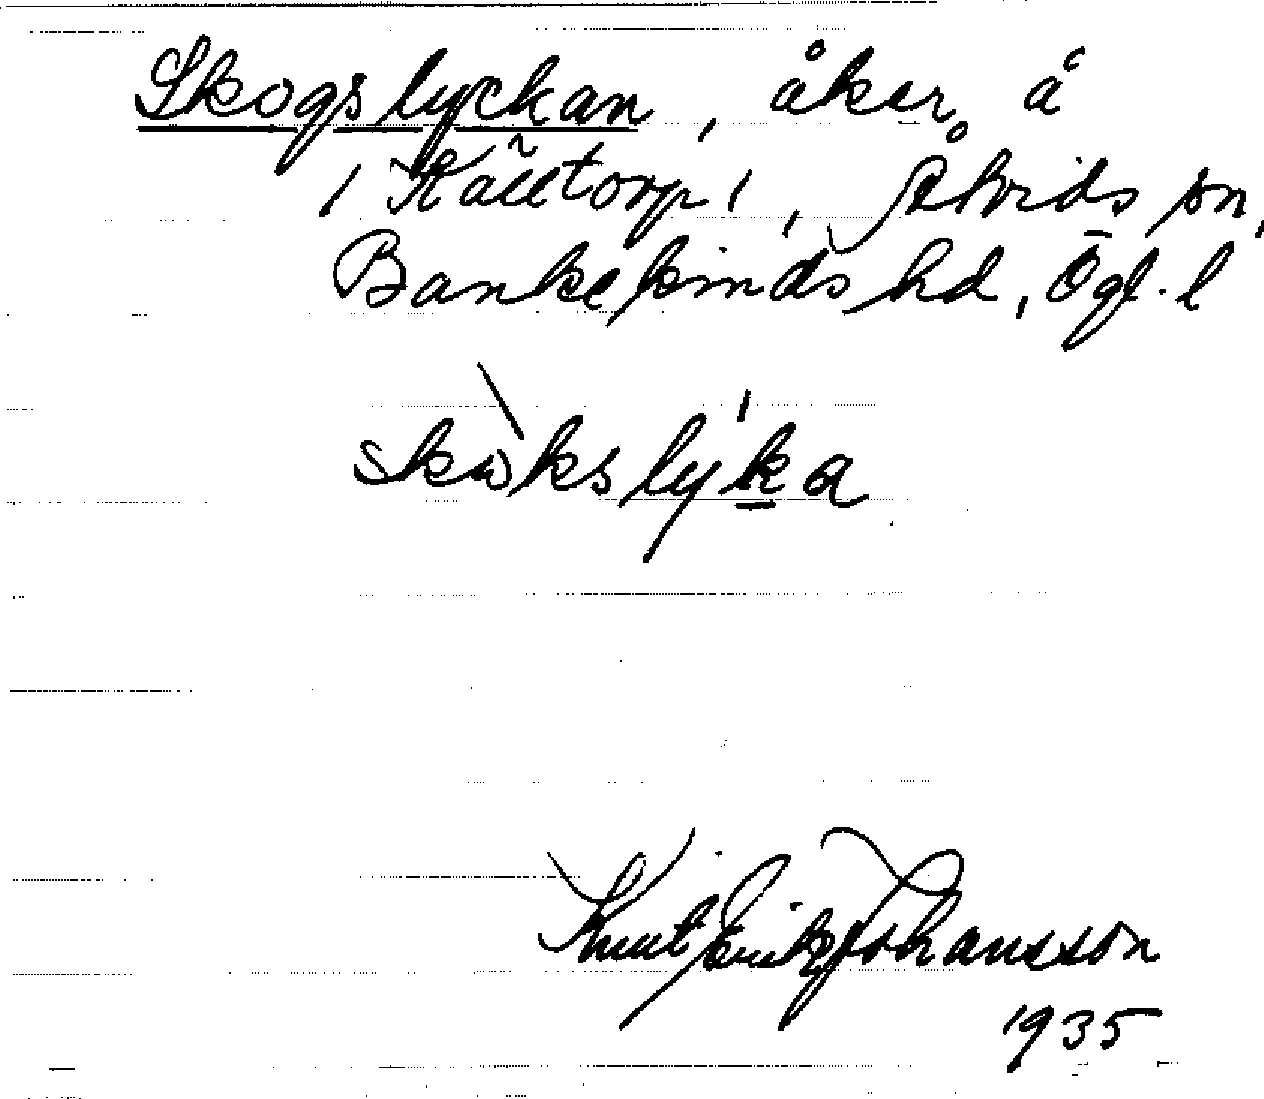 Skogslyckan, åker å
/ Källtorp /, Åtvids sn,
Bankekinds hd, Ögl. l
skωkslyka
Knut Erik Johansson
1935